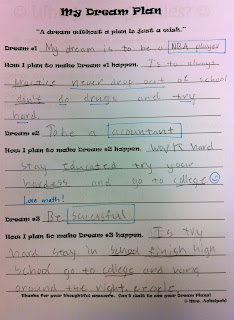 My Dream Plan
"A dream without a plan is just a wish."
Dream #1 My dream is to be a NBA player
How I plan to make Dream #1 happen. Is to always
practice never drop out of school
don't do drugs and try
hard.
Dream #2 To be a accountant
How I plan to make Dream #2 happen. Work hard
stay educated try your
hardess and go to college
Love math!
Dream #3 Be sucessful
How I plan to make Dream #3 happen. Is try
hard stay in school finish high
school go to college and hang
around the right people.
Thanks for your thoughtful answers. Can't wait to see your Dream Plans!
© Mrs.